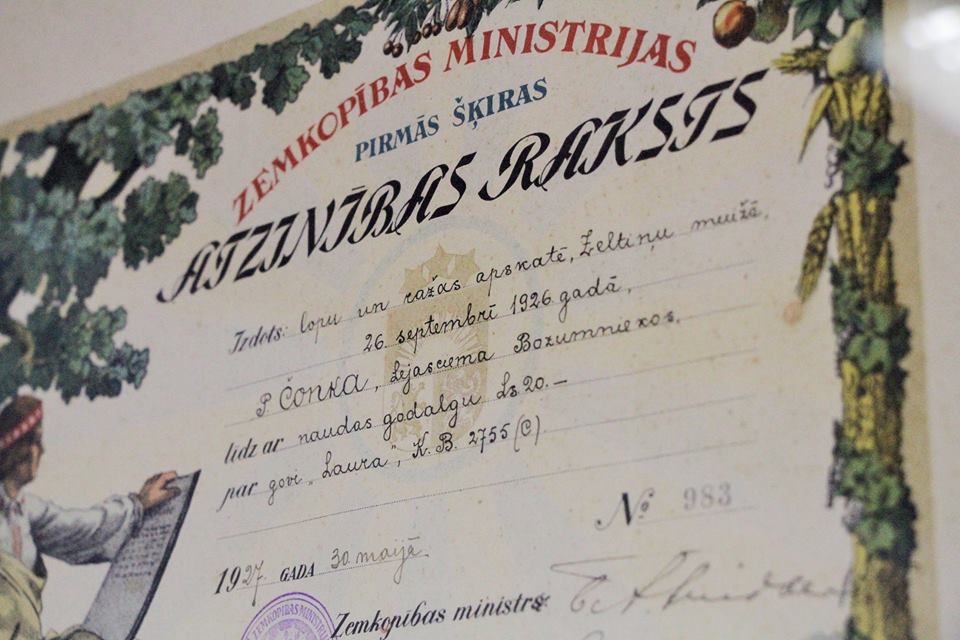 ZEMKOPĪBAS MINISTRIJAS
PIRMĀS ŠĶIRAS
ATZINĪBAS RAKSTS
Izdots: lopu un ražas apskatē, Zeltiņu muižā,
26. septembrī 1926. gadā,
P. Čonka, Lejasciema Bozumniekos,
līdz ar naudas godalgu Ls 20.—
par govi „Laura”, K.B. 2755 (C)
№ 983
1927. GADA 30. maijā.
ZEMKOPĪBAS MINISTRI
Zemkopības ministrs: